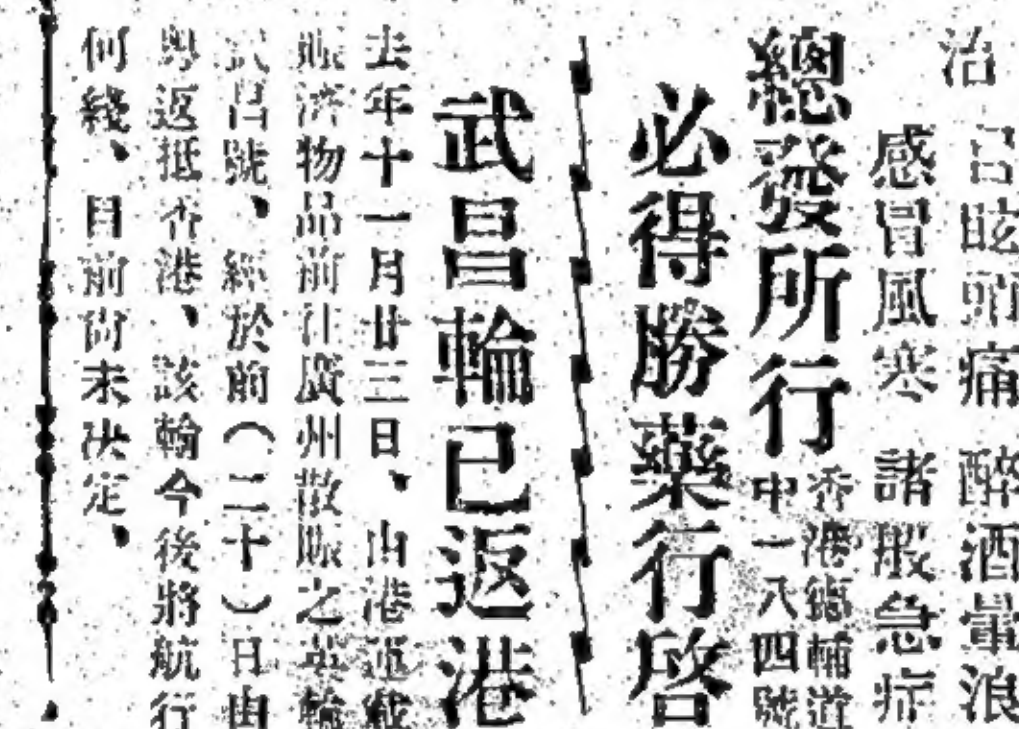 治
呂眩頭痛 醉酒暈浪
感冒風寒 諸般急症
總發所行 香港德輔道
中一八四號
必得勝藥行啓
武昌輪已返港
去年十一月廿三日、由港運載
賑濟物品前往廣州散賑之英輪
武昌號、經於前（二十）日由
粵返抵香港、該輪今後將航行
何綫、目前尙未決定、